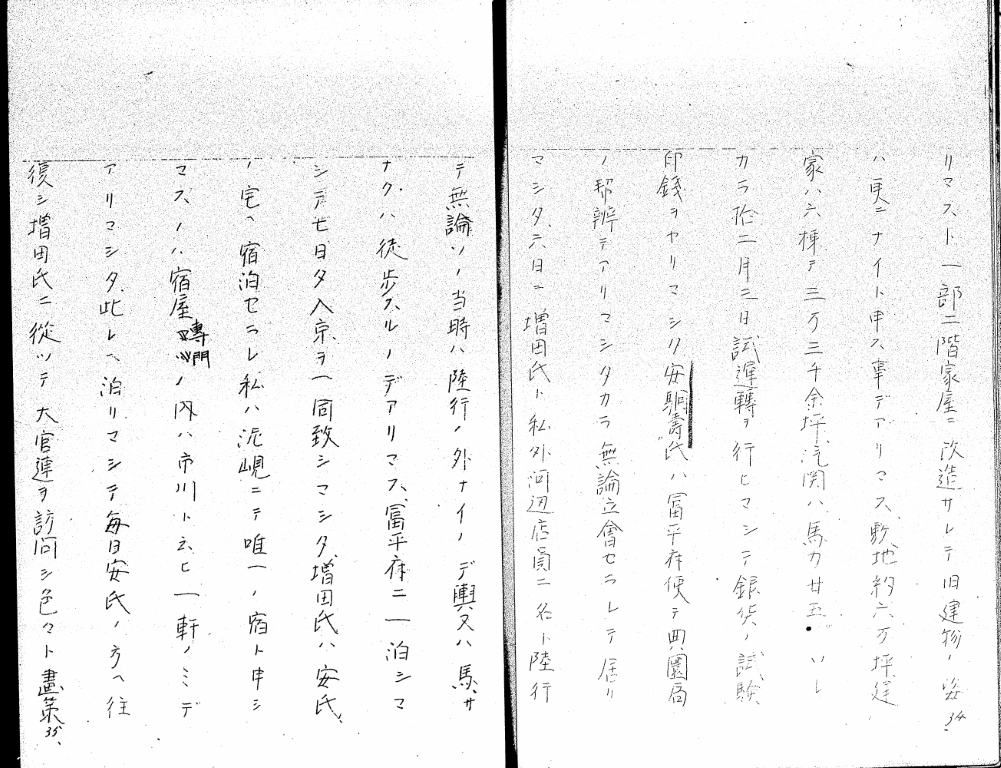 リマスト一部二階家屋ニ改造サレテ旧建物ノ姿
ハ更ニナイト申ス事デアリマス敷地約六万坪建
家ハ六棟デ三万三千余坪、汽関ハ馬力廿五・ソレ
カラ拾二月三日試運轉ヲ行ヒマシテ銀貨ノ試験
印錢ヲヤリマシタ安駉壽氏ハ富平府使デ典圜局
ノ幇辨デアリマシタカラ無論立會セラレテ居リ
マシタ六日ニ増田氏ト私外河辺店員二名ト陸行
34
デ無論ソノ当時ハ陸行ノ外ナイノデ輿又ハ馬、サ
ナクハ徒歩スルノデアリマス、富平府ニ一泊シマ
シテ七日夕入京ヲ一同致シマシタ、増田氏ハ安氏
ノ宅ヘ宿泊セラレ私ハ泥峴ニテ唯一ノ宿ト申シ
マスノハ宿屋專門ノ内ハ市川ト云ヒ一軒ノミデ
アリマシタ、此レヘ泊リマシテ毎日安氏ノ方ヘ往
復シ増田氏ニ從ツテ大官連ヲ訪问シ色々ト畫策
35